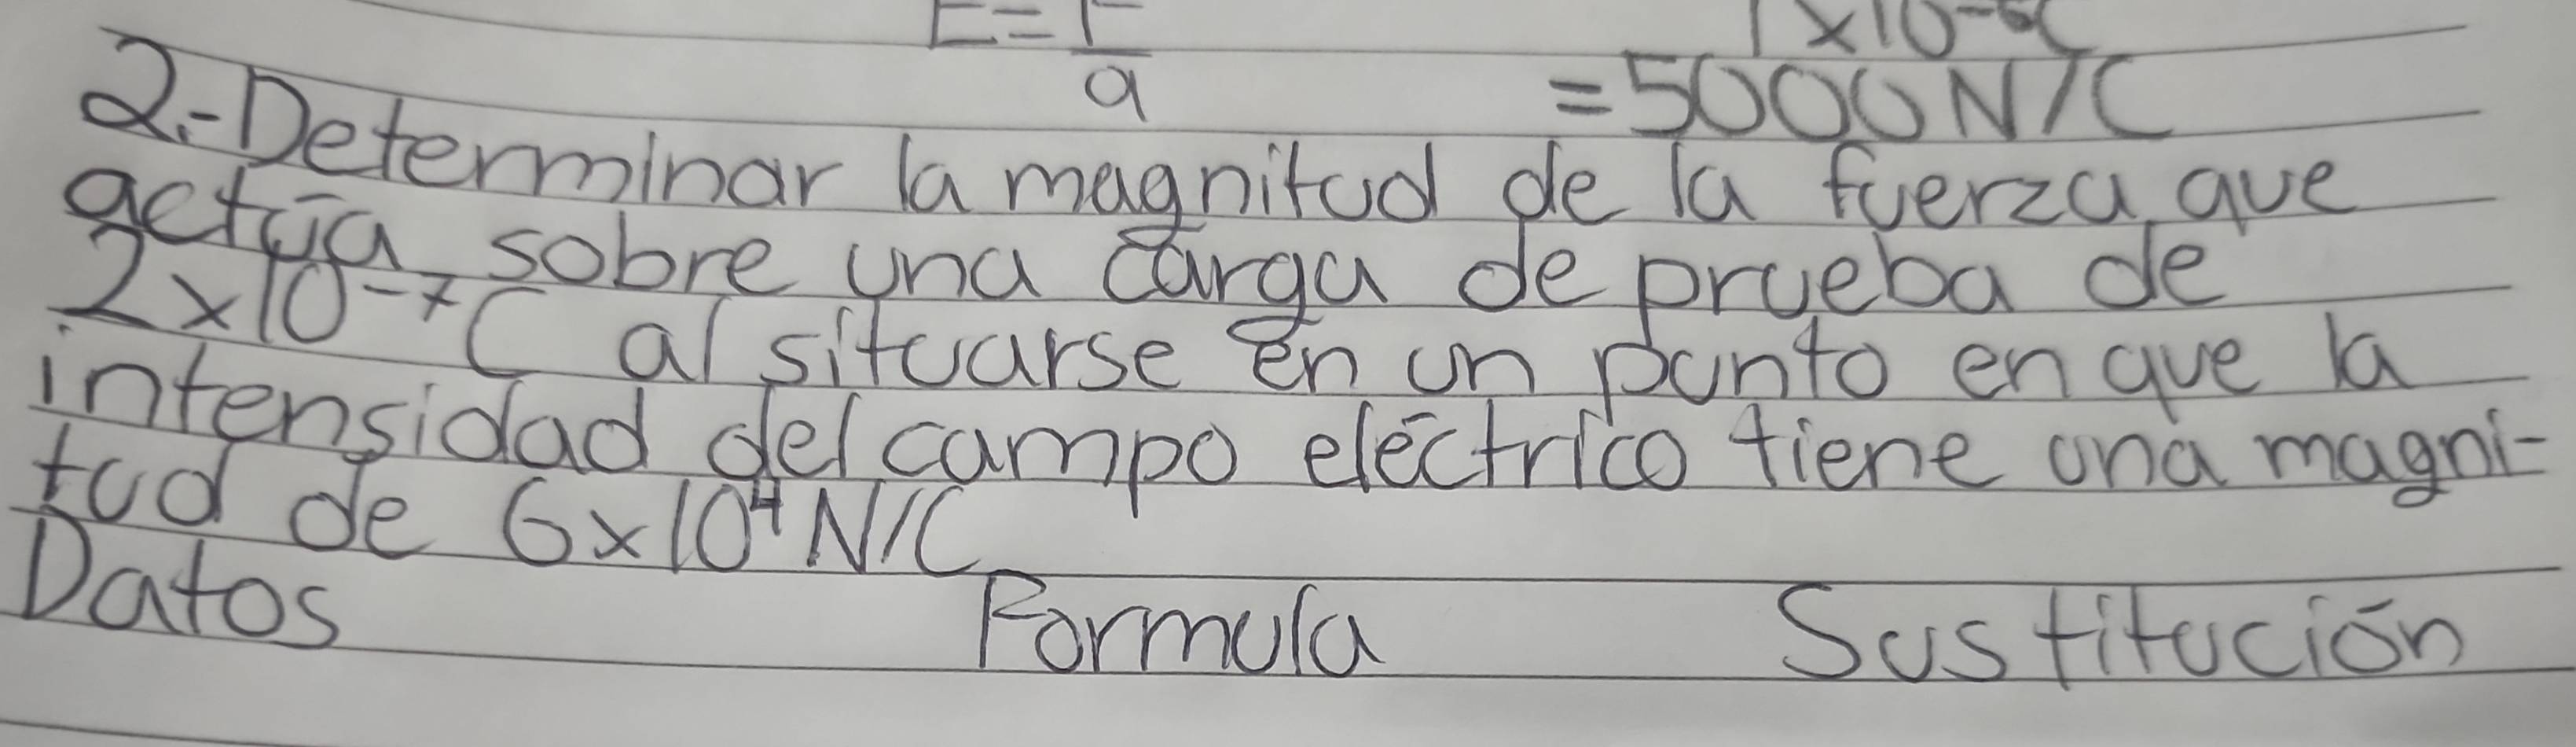 E=F
a
1x10-6C
=5000N/C
2.-Determinar la magnitud de la fuerza que
actúa sobre una carga de prueba de
2x10-7C al situarse en un punto en que la
intensidad del campo eléctrico tiene una magni-
tud de 6x10⁴N/C
Datos Formula Sustitución